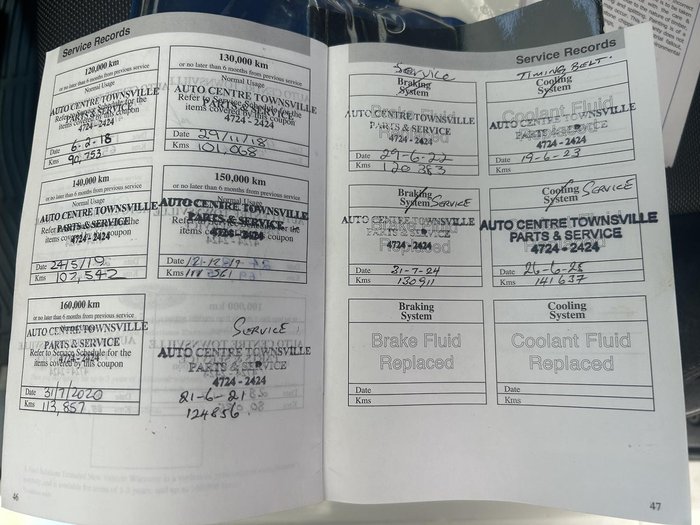 Service Records
120,000 km
or no later than 6 months from previous service
Normal Usage
AUTO CENTRE TOWNSVILLE
Refer to Service Schedule for the
PARTS & SERVICE
items covered by this coupon
4724 - 2424
Date 6-2-18
Kms 90,753
130,000 km
or no later than 6 months from previous service
Normal Usage
AUTO CENTRE TOWNSVILLE
Refer to Service Schedule for the
PARTS & SERVICE
items covered by this coupon
4724 - 2424
Date 29/11/18
Kms 101,068
140,000 km
or no later than 6 months from previous service
Normal Usage
AUTO CENTRE TOWNSVILLE
Refer to Service Schedule for the
PARTS & SERVICE
items covered by this coupon
4724 - 2424
Date 24/5/19
Kms 107,542
150,000 km
or no later than 6 months from previous service
Normal Usage
AUTO CENTRE TOWNSVILLE
PARTS & SERVICE
items covered by this coupon
4724 - 2424
Date 12-12-19
Kms
160,000 km
or no later than 6 months from previous service
Normal Usage
AUTO CENTRE TOWNSVILLE
PARTS & SERVICE
Refer to Service Schedule for the
4724 - 2424
items covered by this coupon
Date 31/7/2020
Kms 113,857
SERVICE
AUTO CENTRE TOWNSVILLE
PARTS & SERVICE
4724 - 2424
21-6-21
124856
46
Service Records
SERVICE
Braking
System
Brake Fluid
AUTO CENTRE TOWNSVILLE
PARTS & SERVICE
Replaced
4724 - 2424
Date 29-6-22
Kms 120383
TIMING BELT.
Cooling
System
Coolant Fluid
AUTO CENTRE TOWNSVILLE
PARTS & SERVICE
Replaced
4724 - 2424
Date 19-6-23
Kms
Braking
System SERVICE
Brake Fluid
AUTO CENTRE TOWNSVILLE
PARTS & SERVICE
Replaced
4724 - 2424
Date 31-7-24
Kms 130911
Cooling SERVICE
System
AUTO CENTRE TOWNSVILLE
PARTS & SERVICE
4724 - 2424
Date 26-6-25
Kms 141637
Braking
System
Brake Fluid
Replaced
Date
Kms
Cooling
System
Coolant Fluid
Replaced
Date
Kms
47